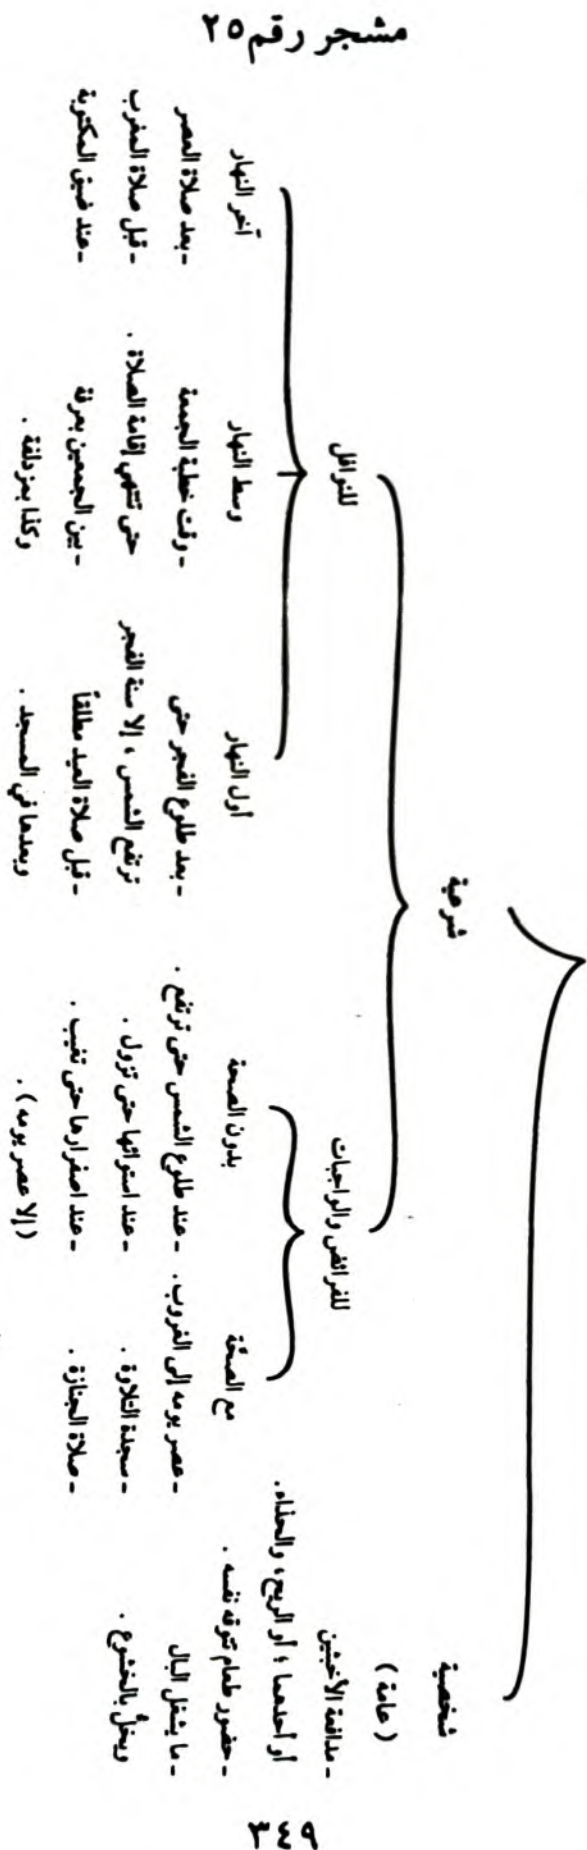 مشجر رقم ٢٥
شرعية
شخصية
(عامة)
للنوافل
للفرائض والواجبات
آخر النهار
- بعد صلاة العصر
- قبل صلاة المغرب
- عند ضيق المكتوبة
وسط النهار
- وقت خطبة الجمعة
حتى تنتهي إقامة الصلاة .
- بين الجمعين بعرفة
وكذا بمزدلفة .
أول النهار
- بعد طلوع الفجر حتى
ترتفع الشمس ، إلا سنة الفجر
- قبل صلاة العيد مطلقاً
وبعدها في المسجد .
بدون الصحة
- عند طلوع الشمس حتى ترتفع .
- عند استوائها حتى تزول .
- عند اصفرارها حتى تغيب .
(إلا عصر يومه) .
مع الصحَّة
- عصر يومه إلى الغروب .
- سجدة التلاوة .
- صلاة الجنازة .
- مدافعة الأخبثين
أو أحدهما ؛ أو الريح ، والحذاء.
- حضور طعام تتوقه نفسه .
- ما يشغل البال
ويخلُّ بالخشوع .
٣٤٩